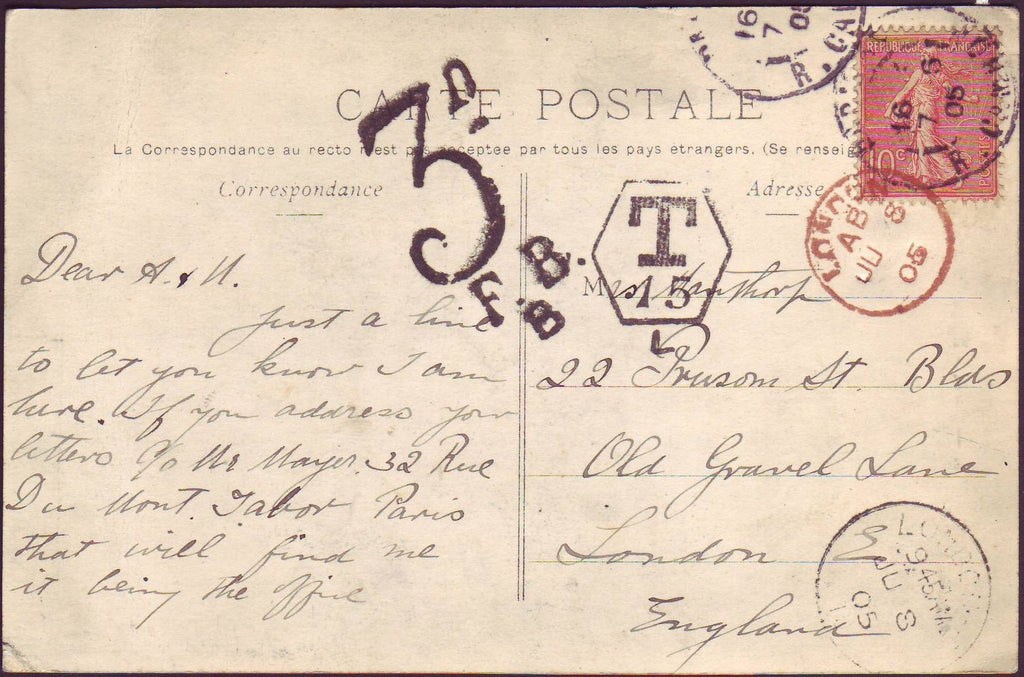 CARTE POSTALE
La Correspondance au recto n'est pas acceptée par tous les pays etrangers. (Se renseig
Correspondance
Adresse
3D.
F.B.
B.
T
15
L
REPUBLIQUE FRANÇAISE
10c
POSTES
16
7
05
R. CA
16
7
05
LONDON
AB
JU 8
05
Dear A. & N.
Just a line
to let you know I am
here. If you address your
letters c/o Mr Mayer. 32 Rue
Du Mont. Tabor Paris
that will find me
it being the office
Mrs Winthorp
22 Prusom St. Blds
Old Gravel Lane
London E
England
LONDON
945AM
JU 8
05